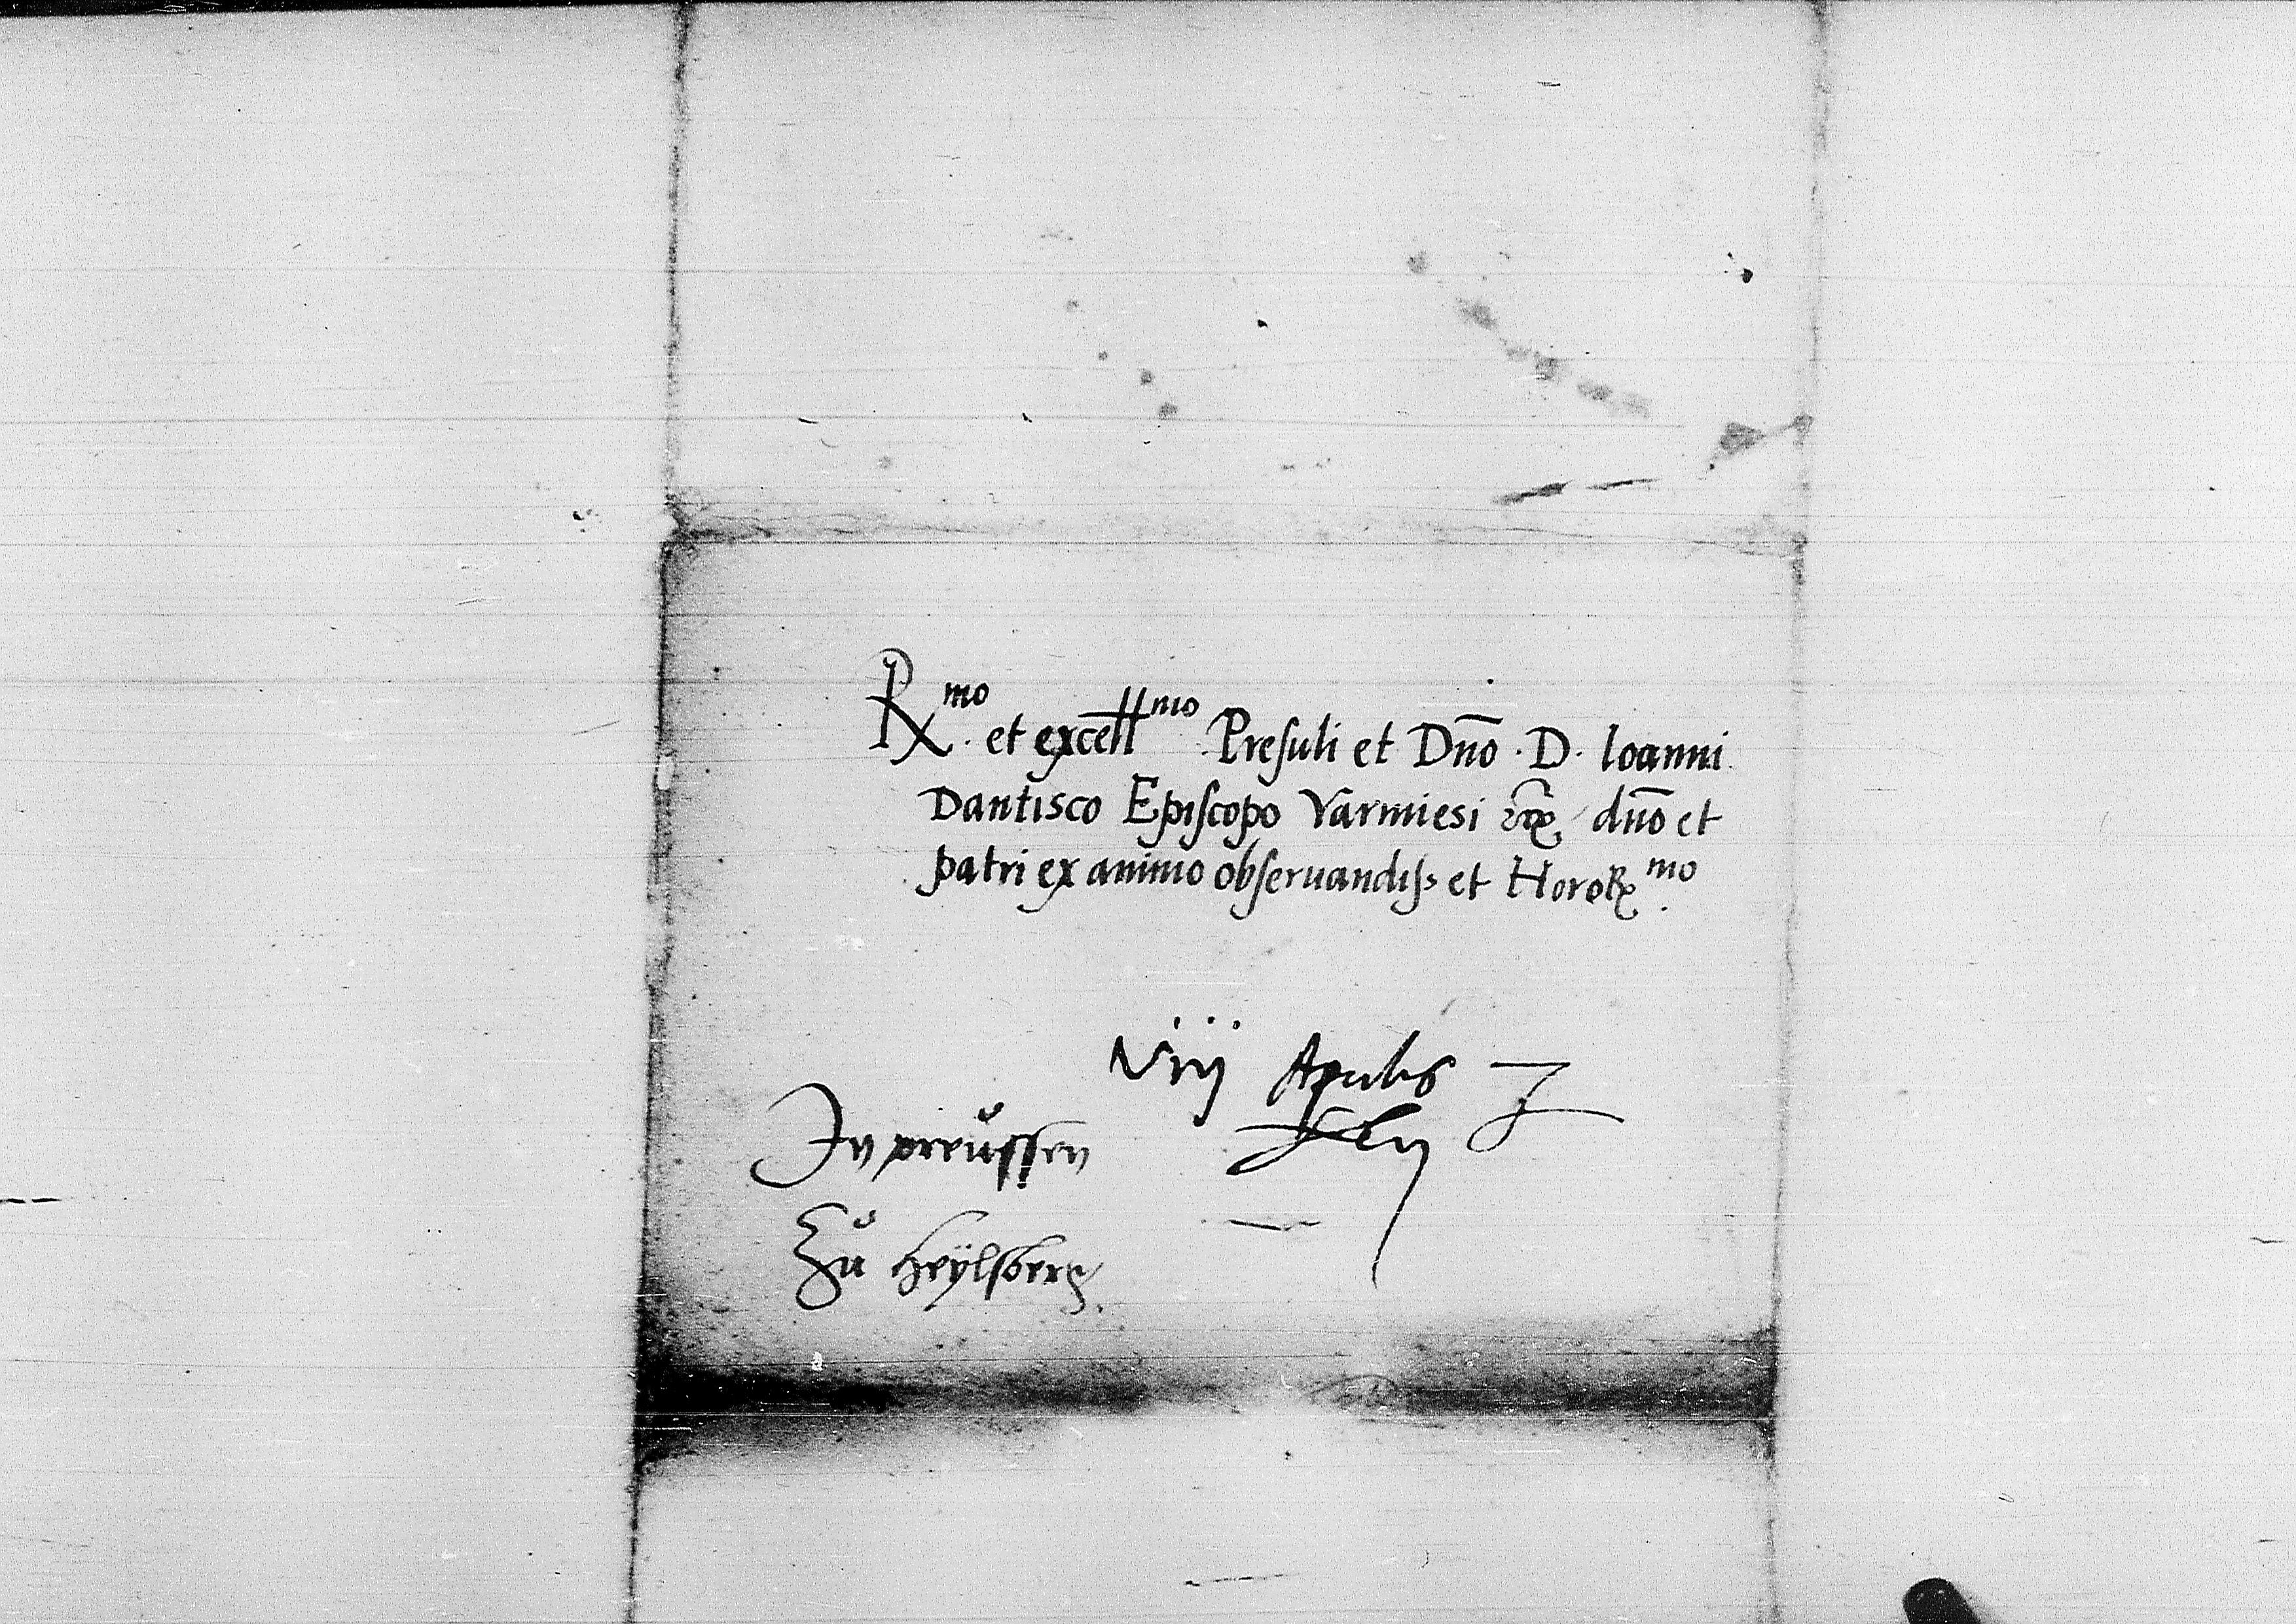 Rmo. et excellmo Presuli et Dno. D. Ioanni
Dantisco Episcopo Varmiesi dno et
patri ex animo obseruandiss et Horor mo.
viij Aprilis
In preussen
Zu Heylsberg.